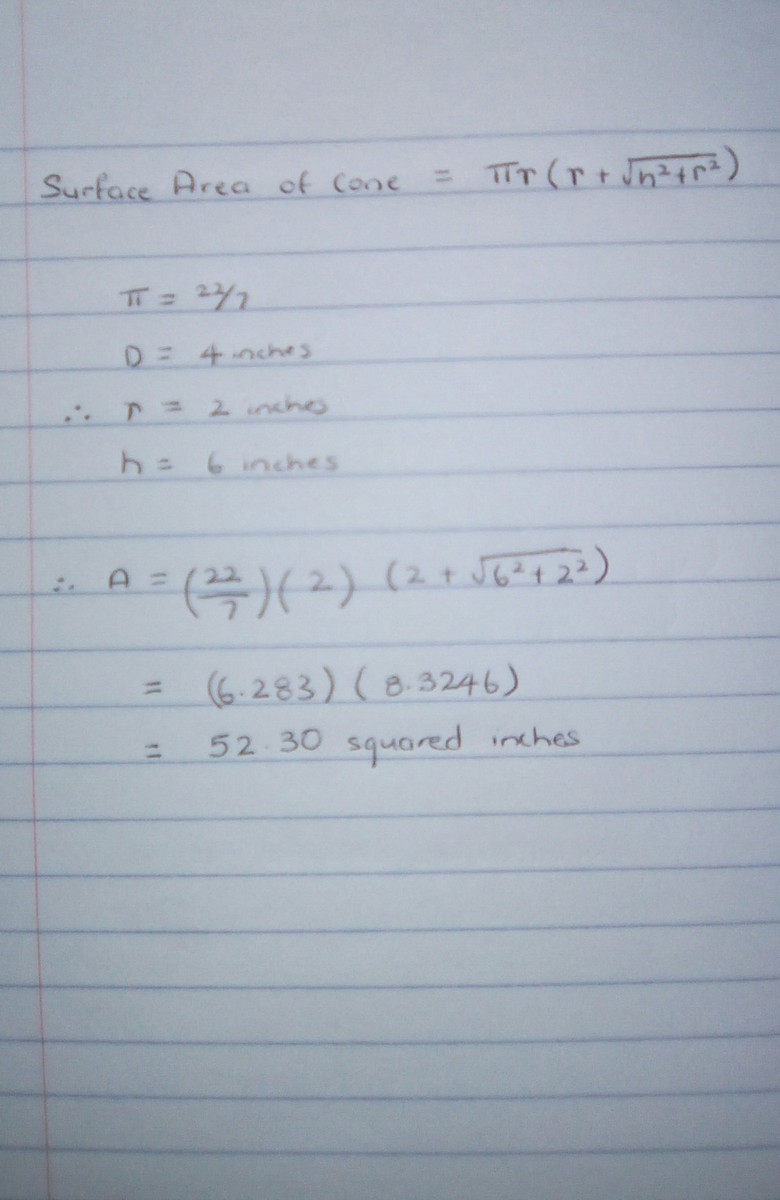 Surface Area of Cone = πr(r + √h²+r²)
π = 22/7
D = 4 inches
∴ r = 2 inches
h = 6 inches
∴ A = (22/7)(2) (2 + √6²+2²)
= (6.283) (8.3246)
= 52.30 squared inches